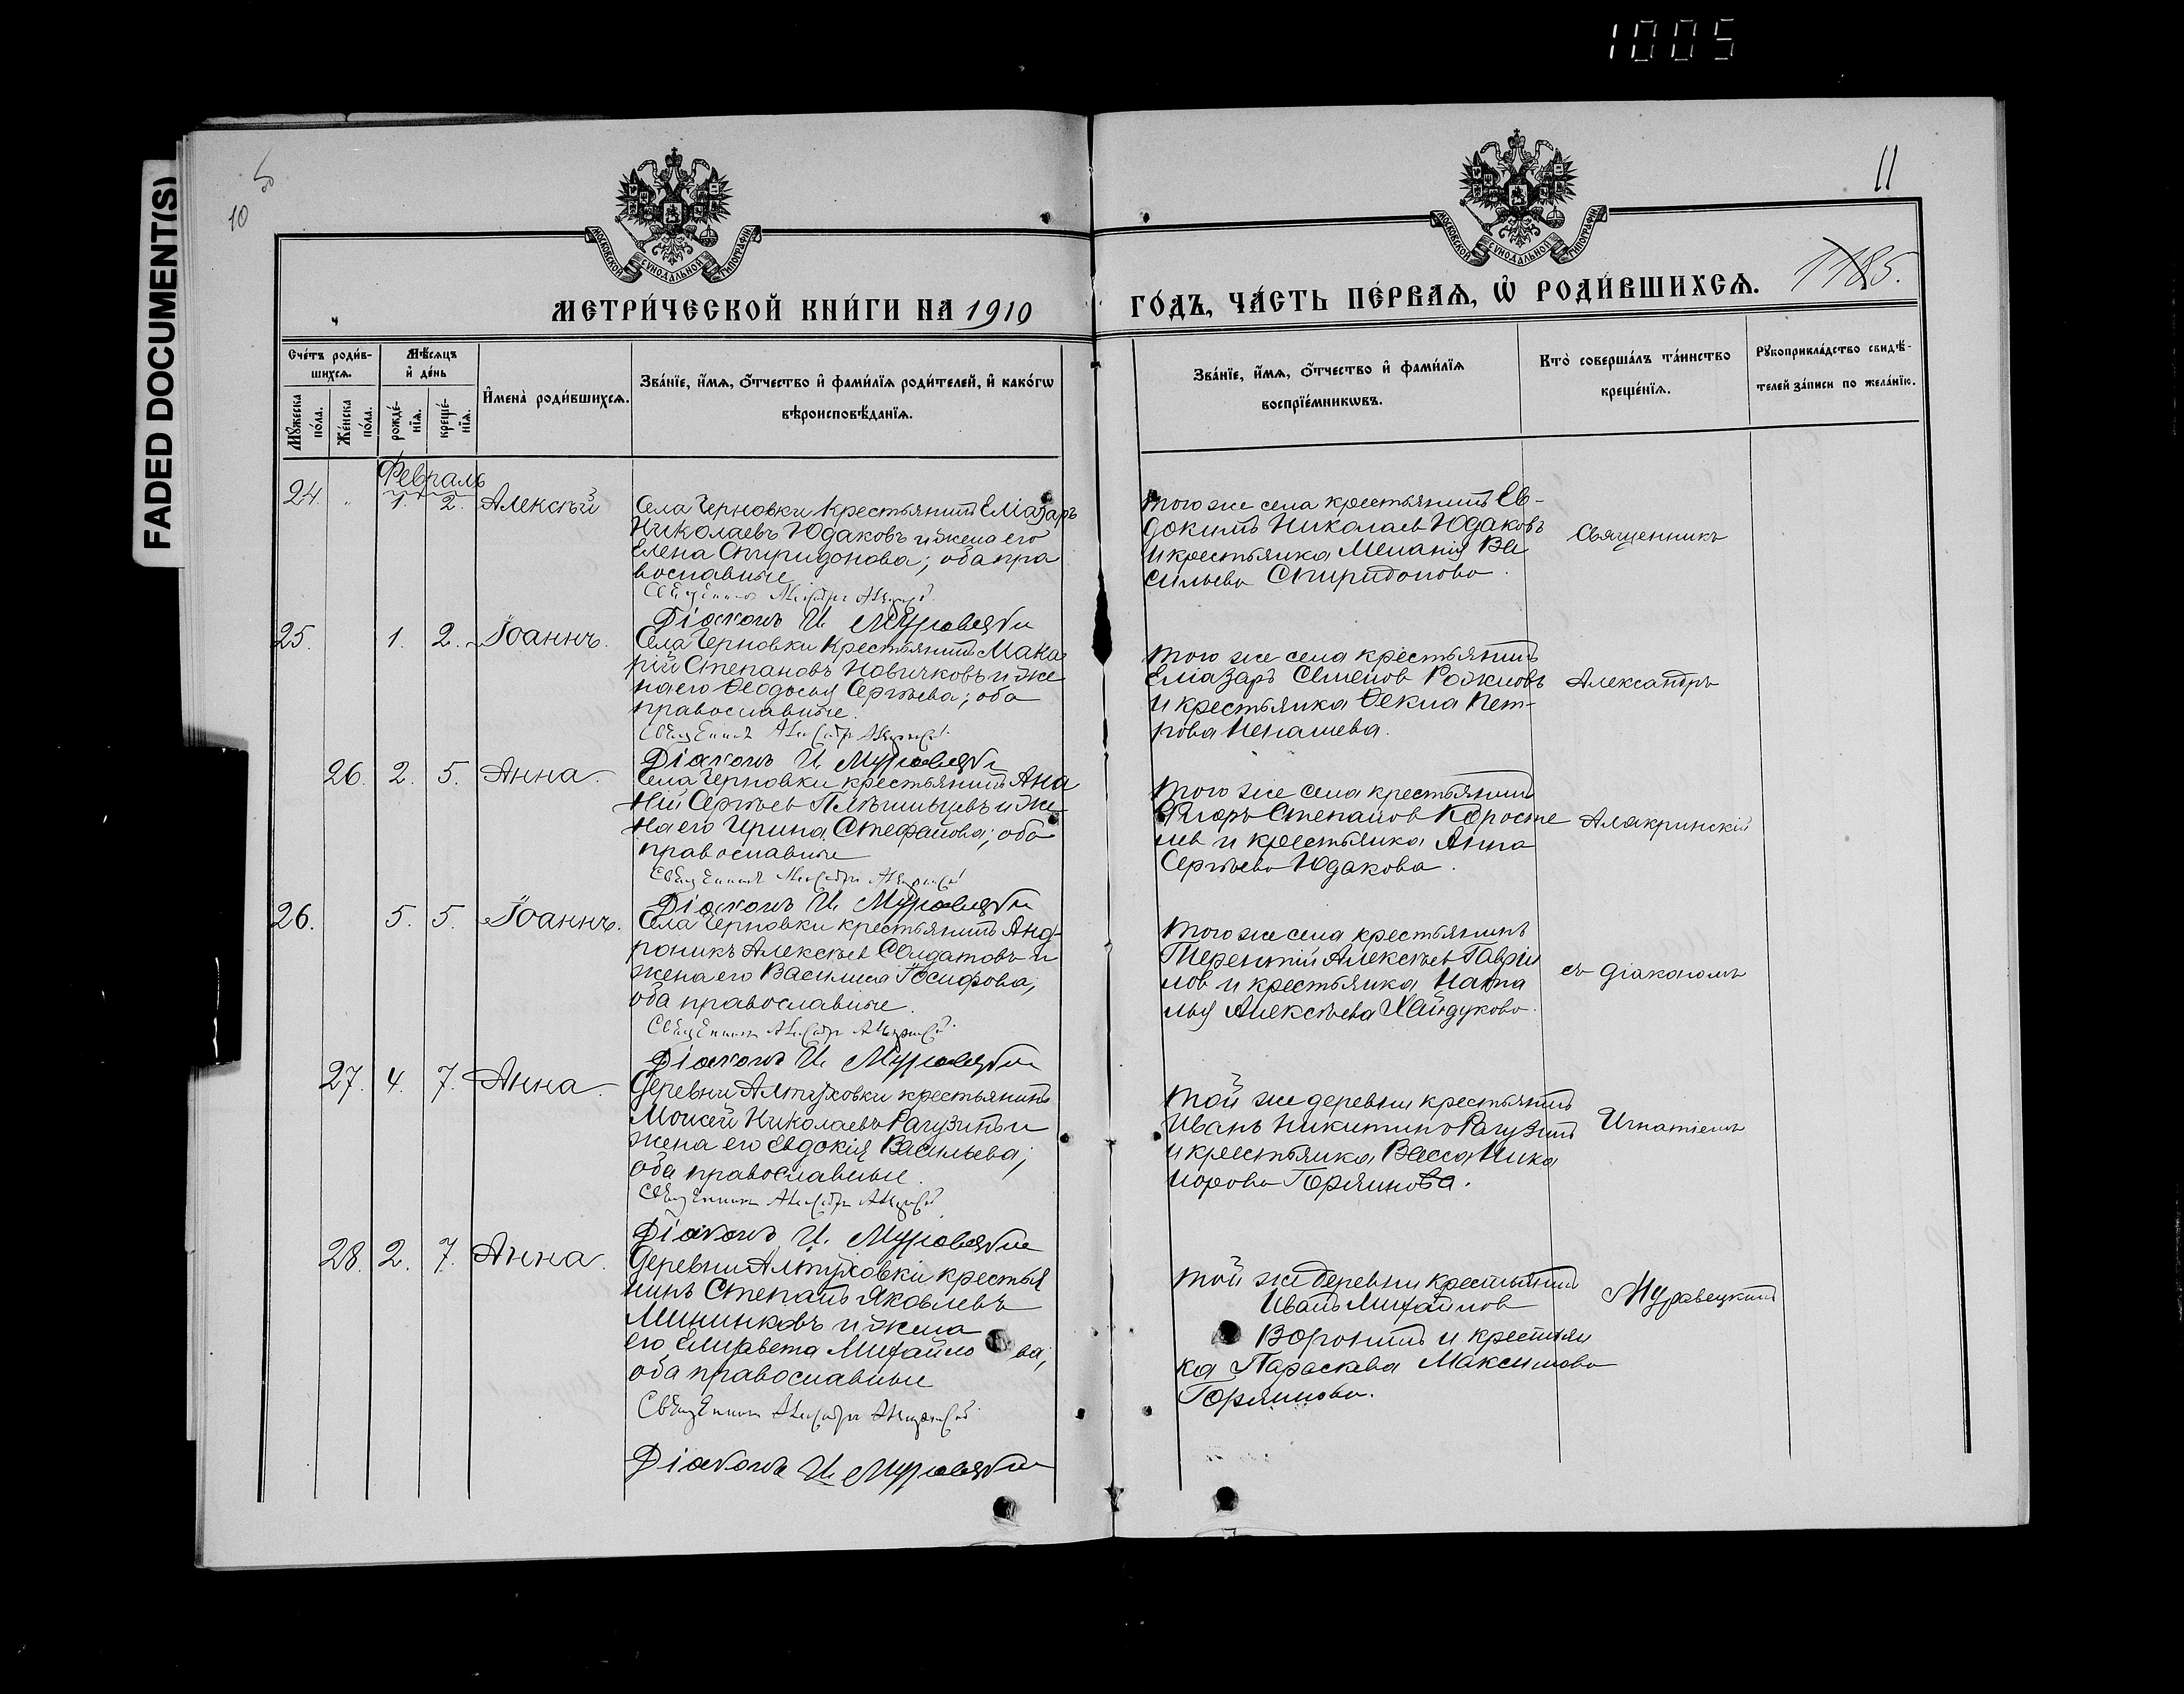 1005
FADED DOCUMENT(S)
10
11
МОСКОВСКОЙ СУНОДАЛЬНОЙ ТИПОГРАФІИ
МОСКОВСКОЙ СУНОДАЛЬНОЙ ТИПОГРАФІИ
МЕТРИ́ЧЕСКОЙ КНИ́ГИ НА 1910
ГО́ДЪ, ЧА́СТЬ ПЕ́РВАѦ, Ѡ҆ РОДИ́ВШИХСѦ.
1185.
Сче́тъ роди́в-
шихсѧ.
Мꙋ́жеска
по́ла.
Же́нска
по́ла.
Мѣ́сѧцъ
и҆ де́нь
рожде́-
нїѧ.
креще́-
нїѧ.
И҆мена̀ роди́вшихсѧ.
Зва́нїе, и҆́мѧ, ѻ҆́тчество и҆ фами́лїѧ роди́телей, и҆ како́гѡ
вѣроисповѣ́данїѧ.
Зва́нїе, и҆́мѧ, ѻ҆́тчество и҆ фами́лїѧ
воспрїе́мникѡвъ.
Кто̀ соверша́лъ та́инство
креще́нїѧ.
Рꙋкоприкла́дство свидѣ́-
телей за́писи по жела́нїю.
Февраль
24. 1. 2. Алексѣй
Села Черновки Крестьянинъ Еліазаръ
Николаевъ Юдаковъ и жена его
Елена Спиридонова; оба пра
вославные
Священникъ Александръ Алакринскій
Діаконъ И. Муравецкій
Того же села крестьянинъ Ев-
докимъ Николаев Юдаковъ
и крестьянка Меланія Ва
сильева Спиридонова.
Священникъ
25. 1. 2. Іоаннъ.
Села Черновки Крестьянинъ Мака
рій Степановъ Новичковъ и же
на его Ѳеодосья Сергѣева; оба
православные.
Священникъ Александръ Алакринскій
Діаконъ И. Муравецкій
Того же села крестьянинъ
Еліазаръ Семенов Рожновъ
и крестьянка Ѳекла Пет-
рова Ненашева.
Александръ
26. 2. 5. Анна.
Села Черновки крестьянинъ Ана
ній Сергѣев и же
на его Ирина Стефанова; оба
православные
Священникъ Александръ Алакринскій
Діаконъ И. Муравецкій
Того же села крестьянинъ
Егоръ Степанов Коросте
лев и крестьянка Анна
Сергѣева Юдакова.
Алакринскій
26. 5. 5. Іоаннъ.
Села Черновки крестьянинъ Анд-
роникъ Алексѣев Солдатовъ и
жена его Василиса Іосифова;
оба православные.
Священникъ Александръ Алакринскій
Діаконъ И. Муравецкій
Того же села крестьянинъ
Терентій Алексѣев Гаври
лов и крестьянка Ната
лья Алексѣева Хайдукова.
съ діакономъ
27. 4. 7. Анна.
Деревни Алтуховки крестьянинъ
Моисей Николаевъ Рагузинъ и
жена его Евдокія Васильева;
оба православные.
Священникъ Александръ Алакринскій
Діаконъ И. Муравецкій
Той же деревни крестьянинъ
Иванъ Никитинъ Рагузинъ
и крестьянка Васса Ника
норова Горяинова.
Игнатіемъ
28. 2. 7. Анна.
Деревни Алтуховки крестья
нинъ Степанъ Яковлевъ
Мининковъ и жена
его Елизавета Михайло ва;
оба православные
Священникъ Александръ Алакринскій
Діаконъ И. Муравецкій
Той же деревни крестьянинъ
Иванъ Михайлов
Воронинъ и крестьян
ка Параскева Максимова
Горяинова.
Муравецкимъ